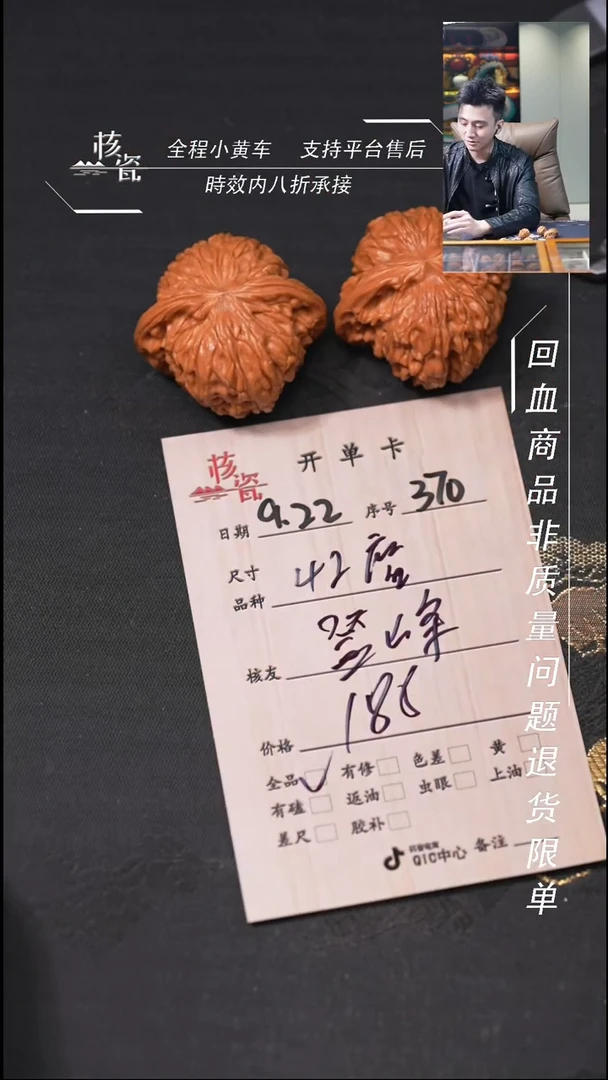 核瓷
全程小黄车 支持平台售后
時效内八折承接
回血商品非质量问题退货限单
核瓷
开单卡
日期 9.22 序号 370
尺寸 42
品种
核友
价格 186
全品 有修 色差 黄
有磕 返油 虫眼 上油
差尺 胶补
抖音电商
QIC中心 备注